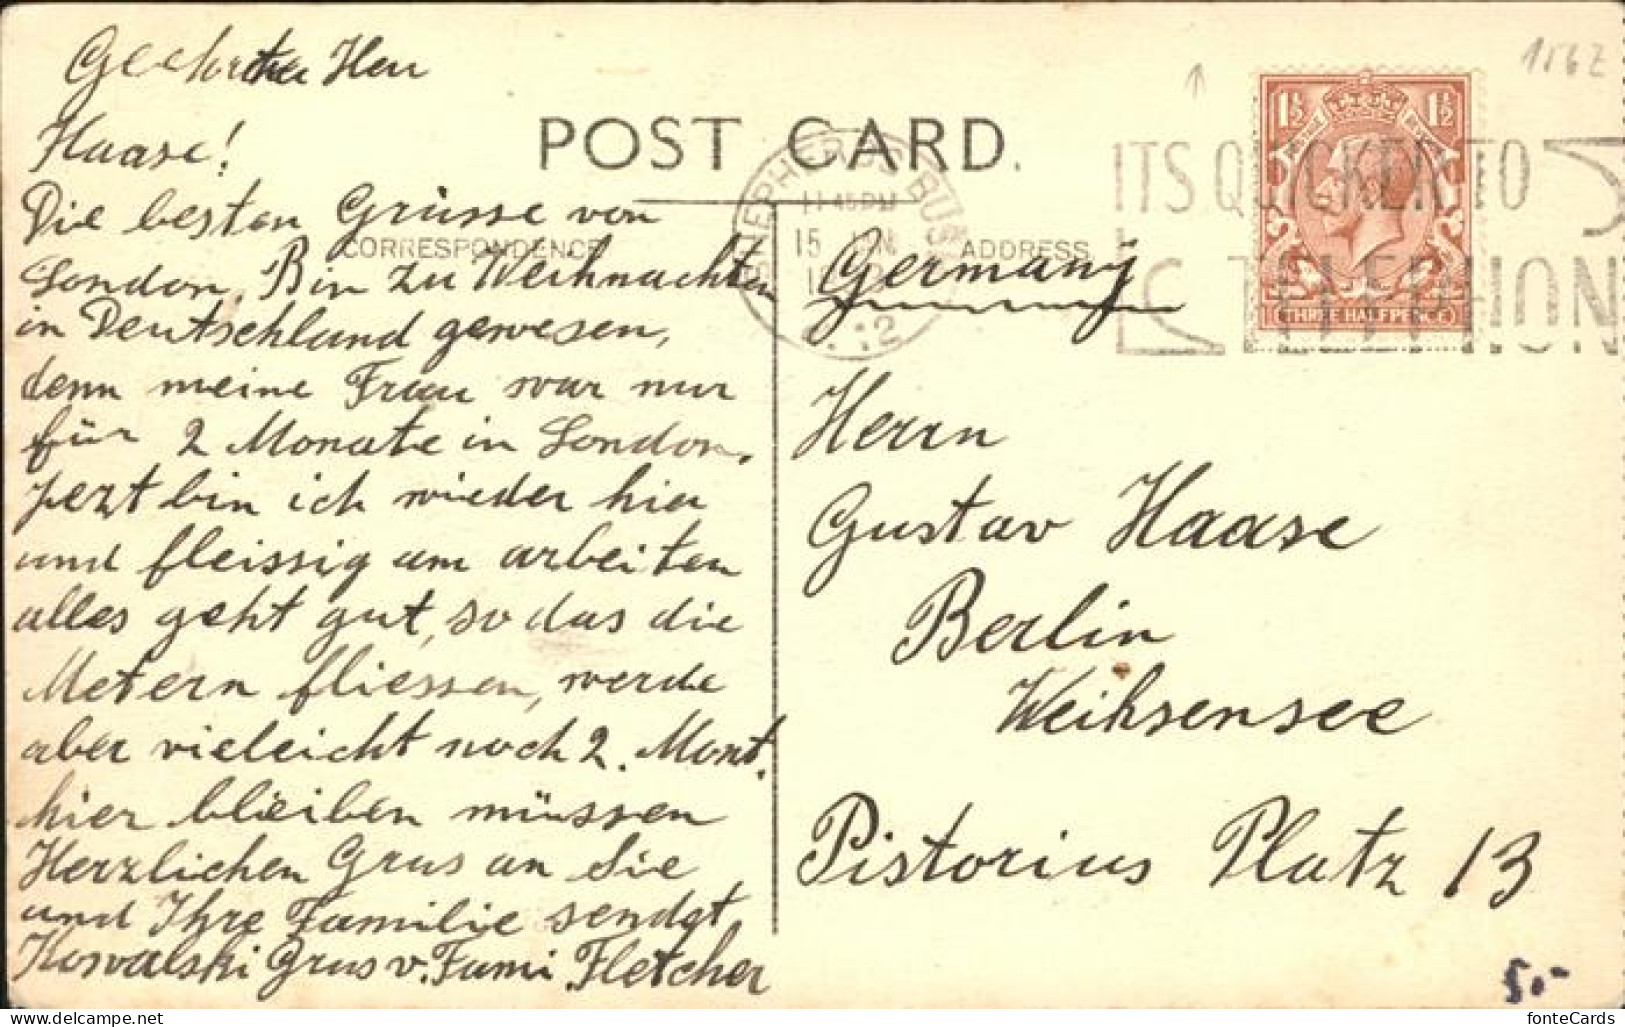 Geehrter Herr
Haase!
Die besten Grüsse von
London. Bin zu Weihnachten
in Deutschland gewesen,
denn meine Frau war nur
für 2 Monate in London.
Jezt bin ich wieder hier
und fleissig am arbeiten
alles geht gut, so das die
Metern fliessen, werde
aber vieleicht noch 2. Mont.
hier bleiben müssen
Herzlichen Grus an Sie
und Ihre Familie sendgt
Kowalski Grus v. Fami. Fletcher
POST CARD.
CORRESPONDENCE
ADDRESS
SHEPHERDS BUSH
11 45 PM
15 JAN
12
ITS QUICKER TO
TELEPHON
1½ 1½
THREE HALFPENCE
Germany
Herrn
Gustav Haase
Berlin
Weihsensee
Pistorius Platz 13
156Z
50-
delcampe.net
fonteCards